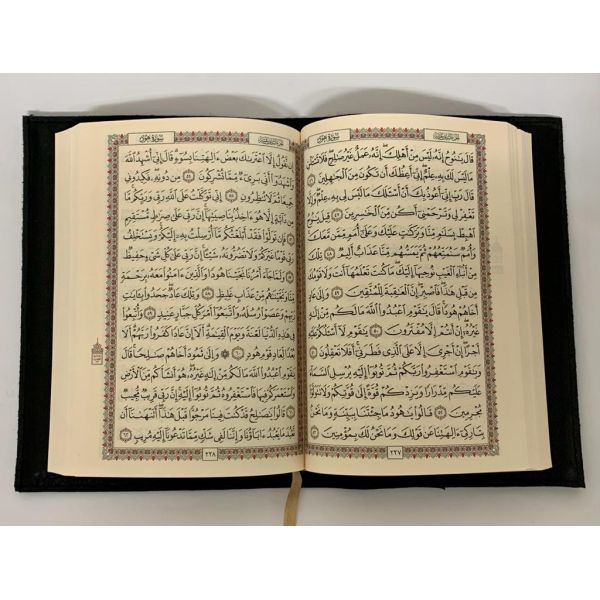 الجزء الثاني عشر سورة هود
قَالَ يَٰنُوحُ إِنَّهُۥ لَيْسَ مِنْ أَهْلِكَ ۖ إِنَّهُۥ عَمَلٌ غَيْرُ صَٰلِحٍ ۖ فَلَا تَسْـَٔلْنِ
مَا لَيْسَ لَكَ بِهِۦ عِلْمٌ ۖ إِنِّىٓ أَعِظُكَ أَن تَكُونَ مِنَ ٱلْجَٰهِلِينَ ٤٦
قَالَ رَبِّ إِنِّىٓ أَعُوذُ بِكَ أَنْ أَسْـَٔلَكَ مَا لَيْسَ لِى بِهِۦ عِلْمٌ ۖ وَإِلَّا
تَغْفِرْ لِى وَتَرْحَمْنِىٓ أَكُن مِّنَ ٱلْخَٰسِرِينَ ٤٧ قِيلَ يَٰنُوحُ
ٱهْبِطْ بِسَلَٰمٍ مِّنَّا وَبَرَكَٰتٍ عَلَيْكَ وَعَلَىٰٓ أُمَمٍ مِّمَّن مَّعَكَ ۚ
وَأُمَمٌ سَنُمَتِّعُهُمْ ثُمَّ يَمَسُّهُم مِّنَّا عَذَابٌ أَلِيمٌ ٤٨ تِلْكَ
مِنْ أَنۢبَآءِ ٱلْغَيْبِ نُوحِيهَآ إِلَيْكَ ۖ مَا كُنتَ تَعْلَمُهَآ أَنتَ وَلَا قَوْمُكَ
مِن قَبْلِ هَٰذَا ۖ فَٱصْبِرْ ۖ إِنَّ ٱلْعَٰقِبَةَ لِلْمُتَّقِينَ ٤٩ وَإِلَىٰ عَادٍ
أَخَاهُمْ هُودًا ۚ قَالَ يَٰقَوْمِ ٱعْبُدُوا۟ ٱللَّهَ مَا لَكُم مِّنْ إِلَٰهٍ
غَيْرُهُۥٓ ۖ إِنْ أَنتُمْ إِلَّا مُفْتَرُونَ ٥٠ يَٰقَوْمِ لَآ أَسْـَٔلُكُمْ عَلَيْهِ
أَجْرًا ۖ إِنْ أَجْرِىَ إِلَّا عَلَى ٱلَّذِى فَطَرَنِىٓ ۚ أَفَلَا تَعْقِلُونَ ٥١
وَيَٰقَوْمِ ٱسْتَغْفِرُوا۟ رَبَّكُمْ ثُمَّ تُوبُوٓا۟ إِلَيْهِ يُرْسِلِ ٱلسَّمَآءَ
عَلَيْكُم مِّدْرَارًا وَيَزِدْكُمْ قُوَّةً إِلَىٰ قُوَّتِكُمْ وَلَا تَتَوَلَّوْا۟
مُجْرِمِينَ ٥٢ قَالُوا۟ يَٰهُودُ مَا جِئْتَنَا بِبَيِّنَةٍ وَمَا نَحْنُ
بِتَارِكِىٓ ءَالِهَتِنَا عَن قَوْلِكَ وَمَا نَحْنُ لَكَ بِمُؤْمِنِينَ ٥٣
٢٢٧
الجزء الثاني عشر سورة هود
إِن نَّقُولُ إِلَّا ٱعْتَرَىٰكَ بَعْضُ ءَالِهَتِنَا بِسُوٓءٍ ۗ قَالَ إِنِّىٓ أُشْهِدُ ٱللَّهَ
وَٱشْهَدُوٓا۟ أَنِّى بَرِىٓءٌ مِّمَّا تُشْرِكُونَ ٥٤ مِن دُونِهِۦ ۖ فَكِيدُونِى
جَمِيعًا ثُمَّ لَا تُنظِرُونِ ٥٥ إِنِّى تَوَكَّلْتُ عَلَى ٱللَّهِ رَبِّى وَرَبِّكُم ۚ مَّا
مِن دَآبَّةٍ إِلَّا هُوَ ءَاخِذٌۢ بِنَاصِيَتِهَآ ۚ إِنَّ رَبِّى عَلَىٰ صِرَٰطٍ مُّسْتَقِيمٍ
٥٦ فَإِن تَوَلَّوْا۟ فَقَدْ أَبْلَغْتُكُم مَّآ أُرْسِلْتُ بِهِۦٓ إِلَيْكُمْ ۚ وَيَسْتَخْلِفُ
رَبِّى قَوْمًا غَيْرَكُمْ وَلَا تَضُرُّونَهُۥ شَيْـًٔا ۚ إِنَّ رَبِّى عَلَىٰ كُلِّ شَىْءٍ حَفِيظٌ
٥٧ وَلَمَّا جَآءَ أَمْرُنَا نَجَّيْنَا هُودًا وَٱلَّذِينَ ءَامَنُوا۟ مَعَهُۥ بِرَحْمَةٍ
مِّنَّا وَنَجَّيْنَٰهُم مِّنْ عَذَابٍ غَلِيظٍ ٥٨ وَتِلْكَ عَادٌ ۖ جَحَدُوا۟ بِـَٔايَٰتِ
رَبِّهِمْ وَعَصَوْا۟ رُسُلَهُۥ وَٱتَّبَعُوٓا۟ أَمْرَ كُلِّ جَبَّارٍ عَنِيدٍ ٥٩ وَأُتْبِعُوا۟
فِى هَٰذِهِ ٱلدُّنْيَا لَعْنَةً وَيَوْمَ ٱلْقِيَٰمَةِ ۗ أَلَآ إِنَّ عَادًا كَفَرُوا۟ رَبَّهُمْ ۗ أَلَا
بُعْدًا لِّعَادٍ قَوْمِ هُودٍ ٦٠ وَإِلَىٰ ثَمُودَ أَخَاهُمْ صَٰلِحًا ۚ قَالَ
يَٰقَوْمِ ٱعْبُدُوا۟ ٱللَّهَ مَا لَكُم مِّنْ إِلَٰهٍ غَيْرُهُۥ ۖ هُوَ أَنشَأَكُم مِّنَ ٱلْأَرْضِ
وَٱسْتَعْمَرَكُمْ فِيهَا فَٱسْتَغْفِرُوهُ ثُمَّ تُوبُوٓا۟ إِلَيْهِ ۚ إِنَّ رَبِّى قَرِيبٌ مُّجِيبٌ
٦١ قَالُوا۟ يَٰصَٰلِحُ قَدْ كُنتَ فِينَا مَرْجُوًّا قَبْلَ هَٰذَآ ۖ أَتَنْهَىٰنَآ أَن
نَّعْبُدَ مَا يَعْبُدُ ءَابَآؤُنَا وَإِنَّنَا لَفِى شَكٍّ مِّمَّا تَدْعُونَآ إِلَيْهِ مُرِيبٍ ٦٢
٢٢٨